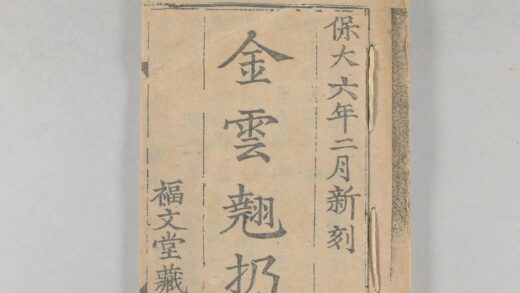 保大六年二月新刻
金雲翹
福文堂藏